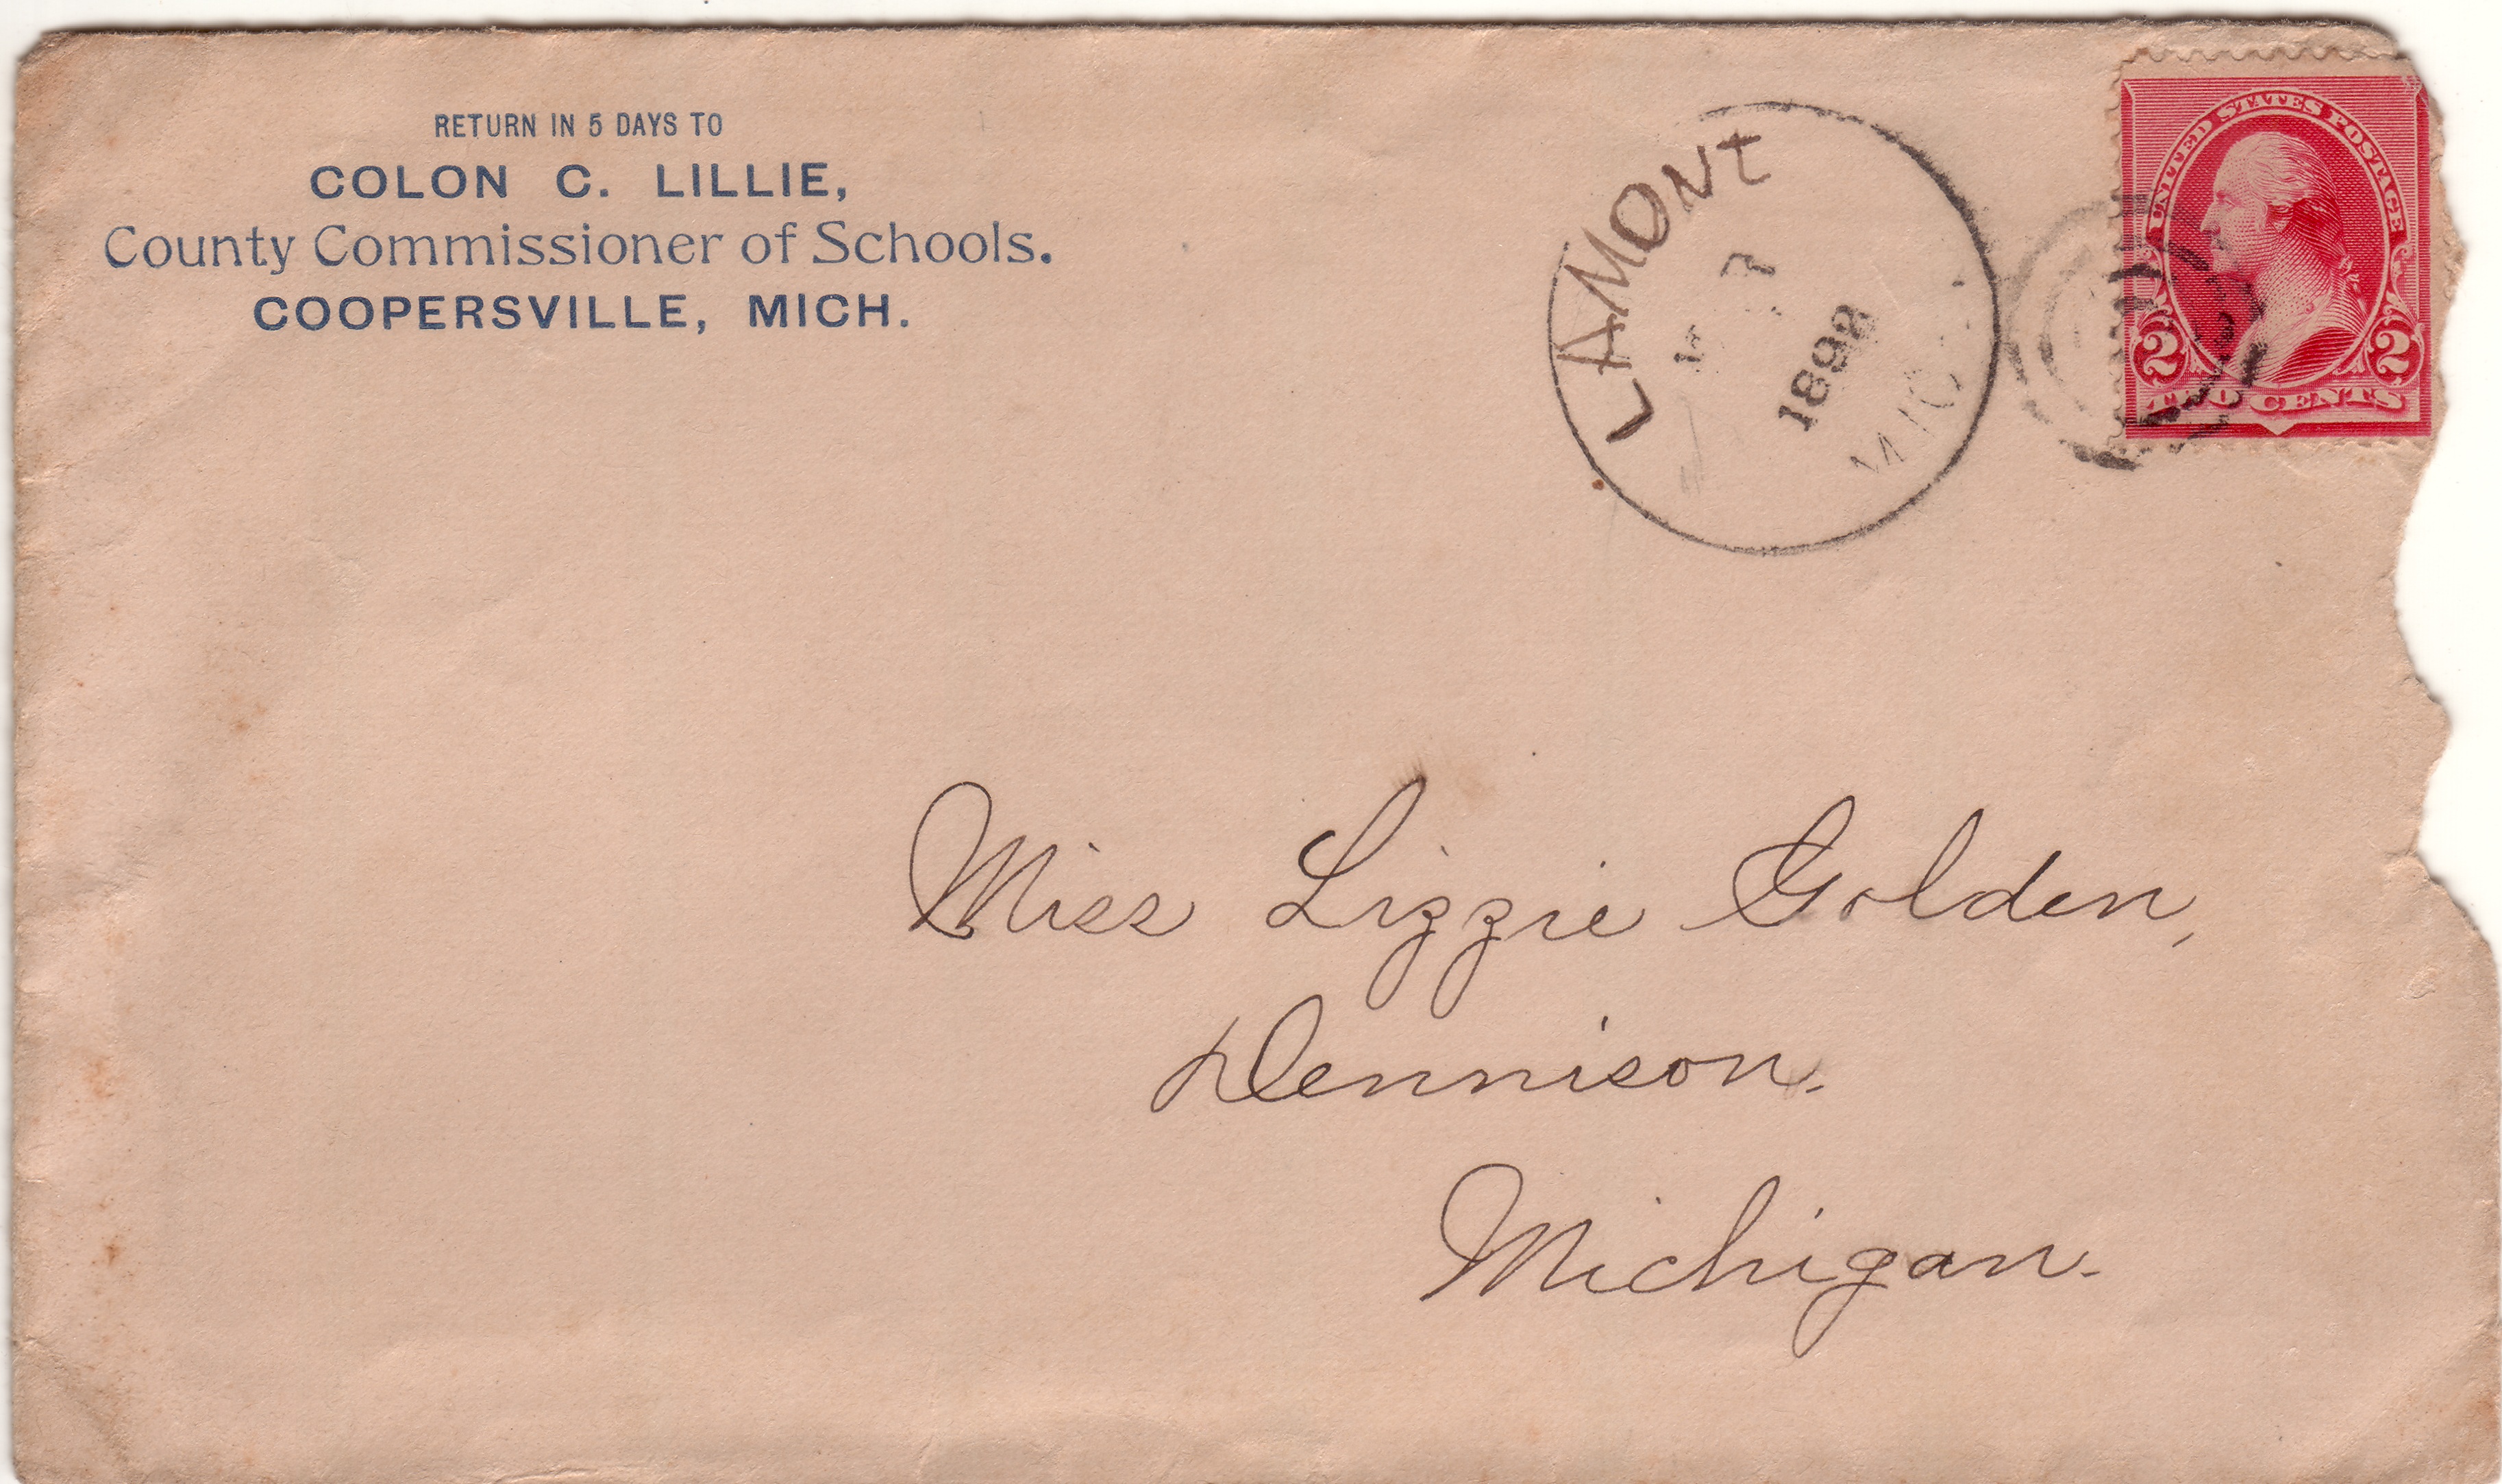 RETURN IN 5 DAYS TO
COLON C. LILLIE,
County Commissioner of Schools.
COOPERSVILLE, MICH.
LAMONT
7
1892
MIC
UNITED STATES POSTAGE
2 2
TWO CENTS
Miss Lizzie Golden,
Dennison.
Michigan.